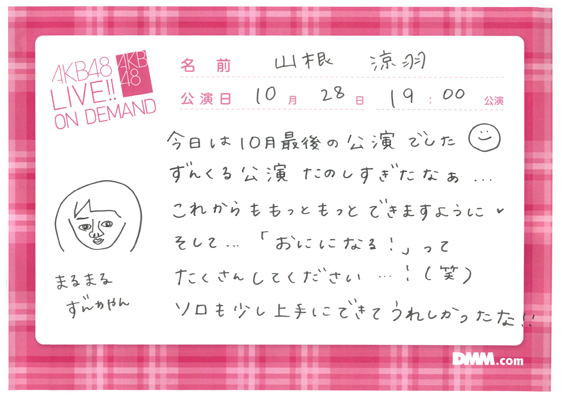 AKB48
LIVE!!
ON DEMAND
AKB
48
名前 山根 涼羽
公演日 10月 28日 19:00 公演
今日は10月最後の公演でした
ずんくる公演 たのしすぎたなぁ…
これからももっともっとできますように♥
そして…「おにになる!」って
たくさんしてください…!(笑)
ソロも少し上手にできてうれしかったな!!
まるまる
ずんかやん
DMM.com